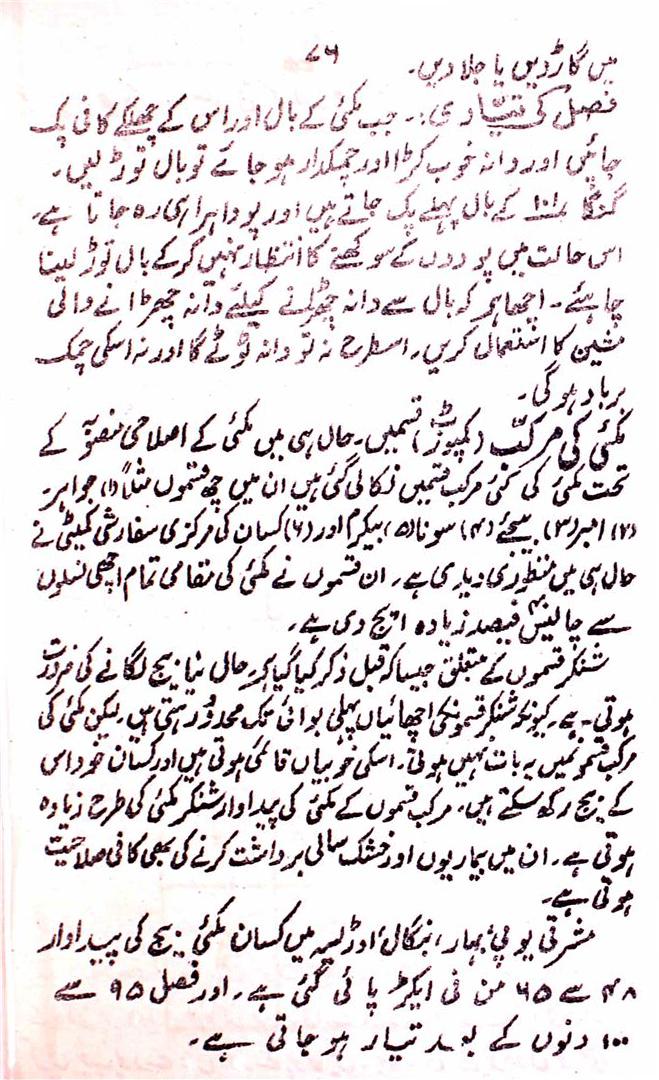 ۷۶
میں گاڑدیں یا جلا دیں۔
فصل کی تیاری:۔ جب مکئی کے بال اور اس کے چھلکے کافی پک
جائیں اور دانہ خوب کڑا اور چمکدار ہو جائے تو بال توڑ لیں۔
گنگا ۱۰۱ کے بال پہلے پک جاتے ہیں اور پودا ہرا ہی رہ جاتا ہے۔
اس حالت میں پودوں کے سوکھنے کا انتظار نہیں کر کے بال توڑ لینا
چاہئے۔ اچھا ہو کہ بال سے دانہ چھڑانے کیلئے دانہ چھڑانے والی
مشین کا استعمال کریں۔ اسطرح نہ تو دانہ ٹوٹے گا اور نہ اسکی چمک
برباد ہوگی۔
مکئی کی مرکب (کمپوزٹ) قسمیں۔ حال ہی میں مکئی کے اصلاحی منصوبہ کے
تحت مکئی کی کئی مرکب قسمیں نکالی گئی ہیں ان میں چھ قسموں مثلاً (۱) جواہر۔
(۲) امبر (۳) بیجئے (۴) سونا (۵) بیکرم اور (۶) کسان کی مرکزی سفارشی کمیٹی نے
حال ہی میں منظوری دیدی ہے۔ ان قسموں نے مکئی کی مقامی تمام اچھی نسلوں
سے چالیس ۴۰ فیصد زیادہ اپج دی ہے۔
شنکر قسموں کے متعلق جیسا کہ قبل ذکر کیا گیا ہر حال نیا بیج لگانے کی ضرورت
ہوتی ہے۔ کیونکہ شنکر قسمونکی اچھائیاں پہلی بوائی تک محدود رہتی ہیں۔ لیکن مکئی کی
مرکب قسمونمیں یہ بات نہیں ہوتی۔ اسکی خوبیاں قائم ہوتی ہیں اور کسان خود اس
کے بیج رکھ سکتے ہیں، مرکب قسموں کے مکئی کی پیداوار شنکر مکئی کی طرح زیادہ
ہوتی ہے۔ ان میں بیماریوں اور خشک سالی برداشت کرنے کی بھی کافی صلاحیت
ہوتی ہے۔
مشرقی یو پی، بہار، بنگال، اوڑیسہ میں کسان مکئی بیج کی پیداوار
۴۸ سے ۶۵ من فی ایکڑ پائی گئی ہے۔ اور فصل ۹۵ سے
۱۰۰ دنوں کے بعد تیار ہو جاتی ہے۔